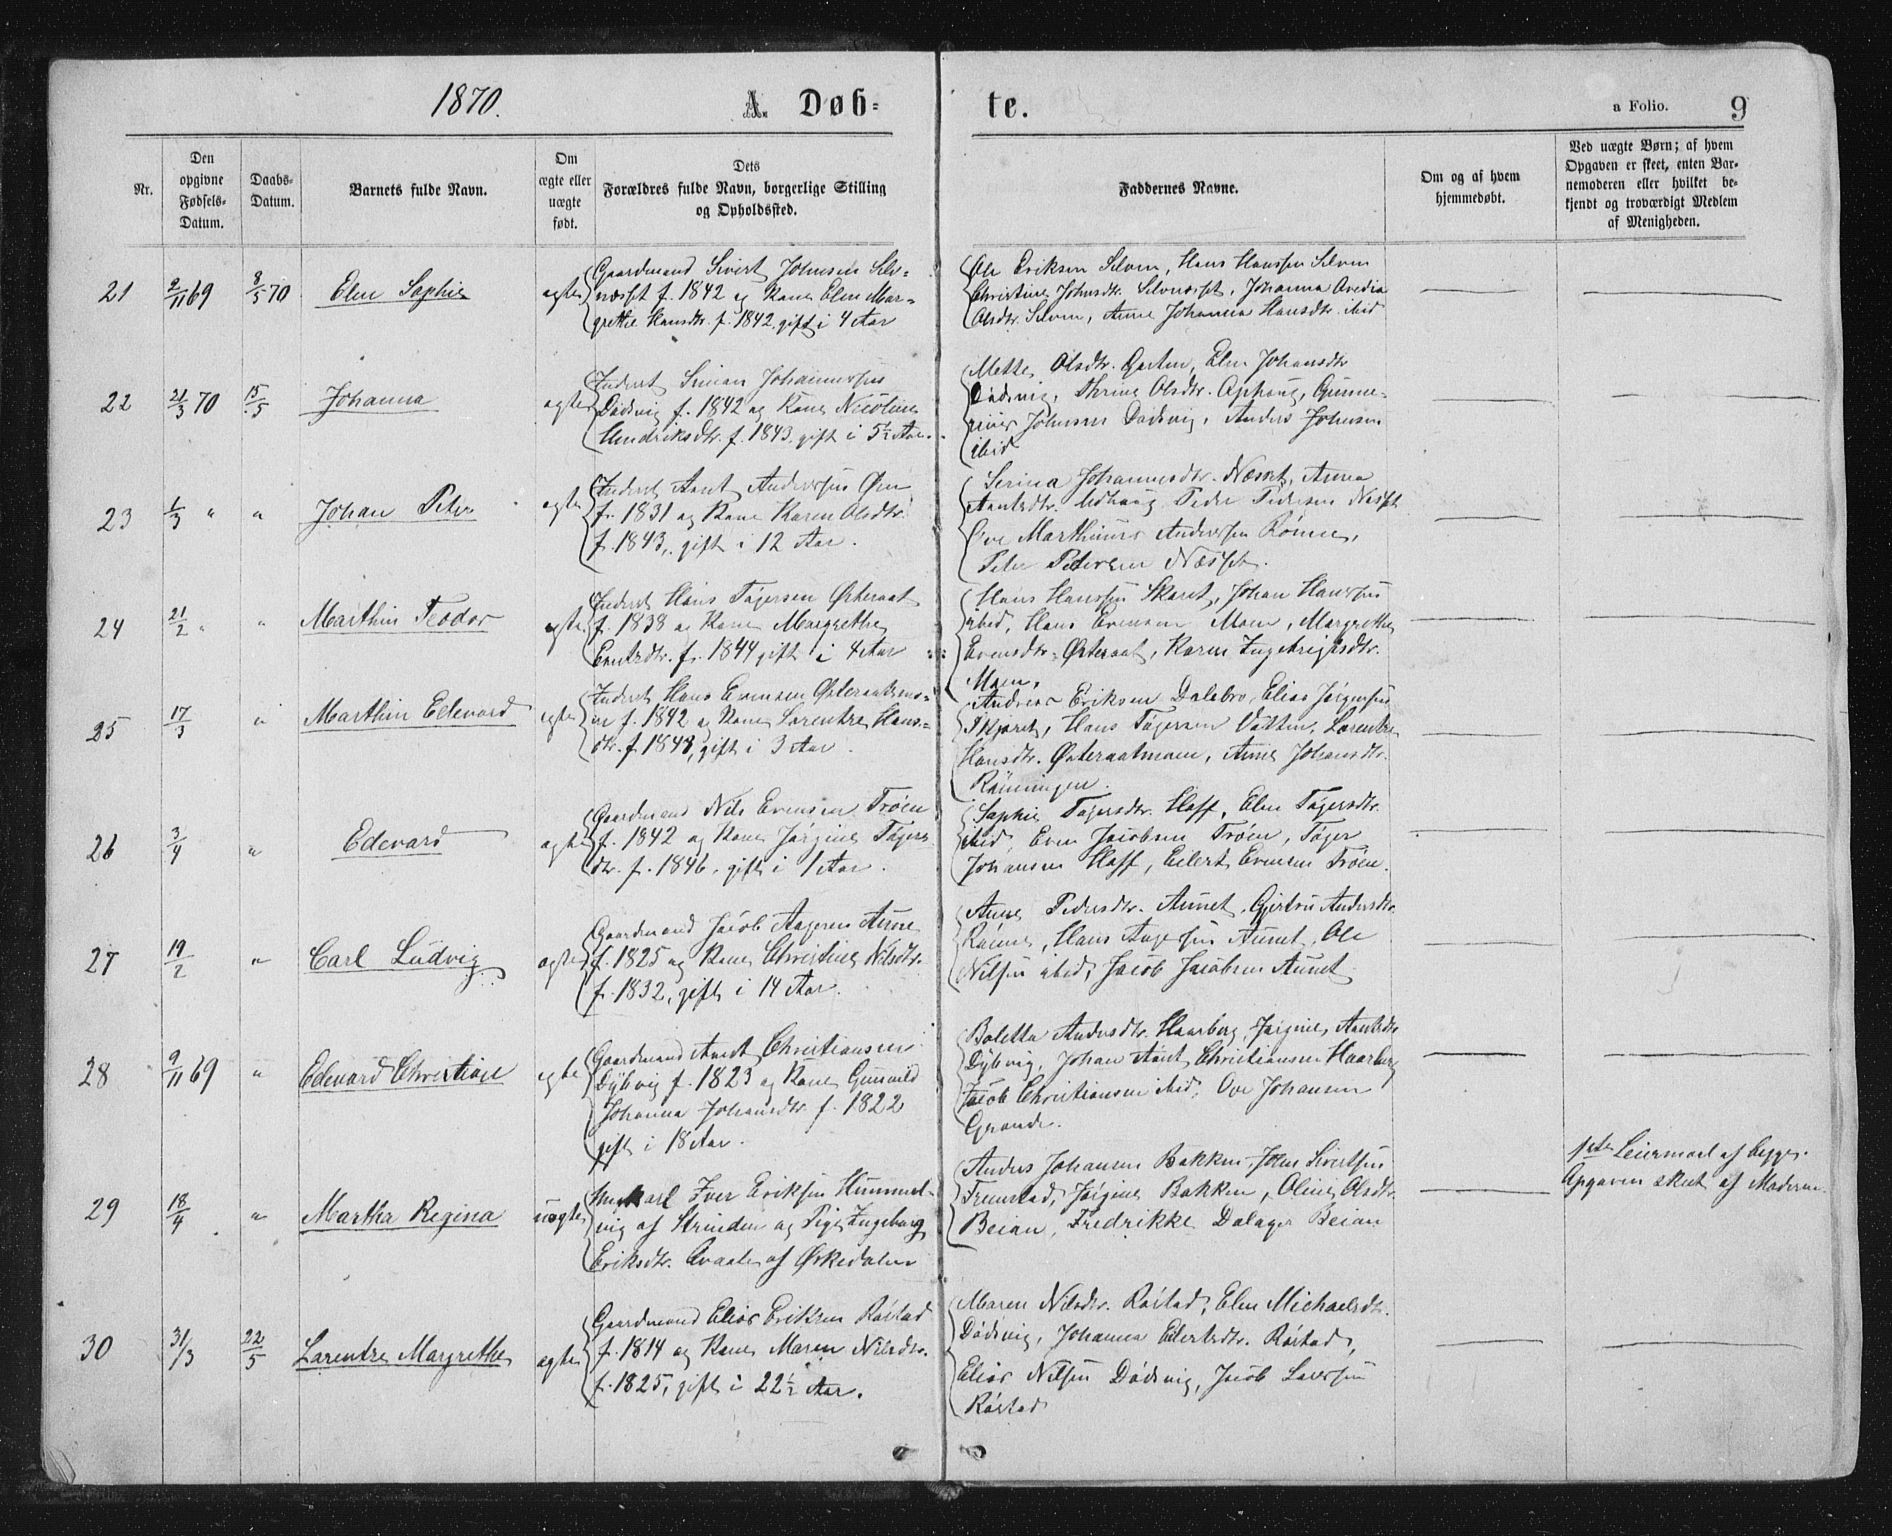 1870.
A. Døb=
te.
a Folio.
9
Nr.
Den opgivne Fødsels-Datum.
Daabs-Datum.
Barnets fulde Navn.
Om ægte eller uægte født.
Dets Forældres fulde Navn, borgerlige Stilling og Opholdssted.
Faddernes Navne.
Om og af hvem hjemmedøbt.
Ved uægte Børn; af hvem Opgaven er skeet, enten Barnemoderen eller hvilket bekjendt og troværdigt Medlem af Menigheden.
21
9/11 69
8/5 70
Elen Sophie
ægte
Gaardmand Sivert Johnsen Selv-
næsset f. 1842 og Kone Elen Mar-
grethe Hansdtr. f. 1842 gift i 4 Aar
Ole Eriksen Selven, Hans Hanssen Selven
Christine Johnsdtr. Selvnæsset, Johanna
Olsdtr. Selven, Anne Johanna Hansdtr. ibid
22
21/3 70
15/5
Johanna
ægte
Inderst Simon Johannessen
Dødsvig f. 1842 og Kone Nicoline
Hendriksdtr. f. 1843 gift i 5½ Aar.
Mette Olsdtr. Garten, Elen Johansdtr
Dødsvig, Olsdtr. Ophaug,
Johnsen Dødsvig, Anders Johnsen
ibid
23
1/3 "
"
Johan Peter
ægte
Inderst Arnt Anderssen
f. 1831 og Kone Karen Olsdtr.
f. 1843, gift i 12 Aar.
Serina Johannesdtr. Næsset, Anna
Arntsdtr. Udhaug, Peder Pedersen Næsset
Ove Marthinus Anderssen Rønne,
Peter Petersen Næsset.
24
21/2 "
"
Marthin Teodor
ægte
Inderst Hans Tøgersen Østeraat
f. 1838 og Kone Margrethe
Evensdtr. f. 1844 gift i 4 Aar
Hans Hanssen Skaret, Johan Hanssen
ibid, Hans Evensen Moen, Margrethe
Evensdtr. Østeraat, Karen Ingebrigtsdtr.
Moen.
25
17/3
"
Marthin Edevard
ægte
Inderst Hans Evensen Østeraatsmo-
en f. 1842 og Kone Lorentze Hans-
dtr. f. 1848, gift i 3 Aar.
Andreas Eriksen Dalebro, Elias Jørgensen
Hans Tøgersen Vatten, Lorentze
Hansdtr. Østeraatmoen, Anne Johansdtr.
Rønningen.
26
3/4
"
Edevard
ægte
Gaardmand Nils Evensen Trøen
f. 1842 og Kone Jørgine Tøgers
dtr. f. 1846. gift i 1 Aar.
Sophie Tøgersdtr. Hoff, Elen Tøgersdtr.
ibid, Even Jacobsen Trøen, Tøger
Johansen Hoff, Eilert Evensen Trøen.
27
19/2
"
Carl Ludvig
ægte
Gaardmand Jacob Aagesen Aunet
f. 1825 og Kone Christine Nilsdtr.
f. 1832, gift i 14 Aar.
Anne Pedersdtr. Aunet, Gjertru Andersdtr.
Rønne, Hans Aagesen Aunet, Ole
Nilsen ibid, Jacob Jacobsen Aunet
28
9/11 69
"
Edevard Christian
ægte
Gaardmand Arnt Christiansen
Dybvig f. 1823 og Kone Gunnild
Johanna Johansdtr f. 1822
gift i 18 Aar.
Boletta Andersdtr. Haarberg, Jørgine Arntsdtr
Dybvig, Johan Arnt Christiansen Haarberg
Jacob Christiansen ibid, Ove Johansen
Grande.
29
18/4
"
Martha Regina
uægte
Ungkarl Iver Eriksen Hummel-
vig af Strinden og Pige Ingeborg
Eriksdtr. af Ørkedalen
Anders Johansen Bakken, John Sivertsen
Fremstad, Jørgine Bakken, Oline Olsdtr.
Beian, Fredrikke Dalager Beian
1ste Leiermaal af begge.
Opgaven skeet af Moderen.
30
31/3
22/5
Lorentze Margrethe
ægte
Gaardmand Elias Eriksen Røstad
f. 1814 og Kone Maren Nilsdtr.
f. 1825, gift i 22½ Aar.
Maren Nilsdtr. Røstad, Elen Michaelsdtr.
Dødsvig, Johanna Eilertsdtr. Røstad,
Elias Nilsen Dødsvig, Jacob Larssen
Røstad